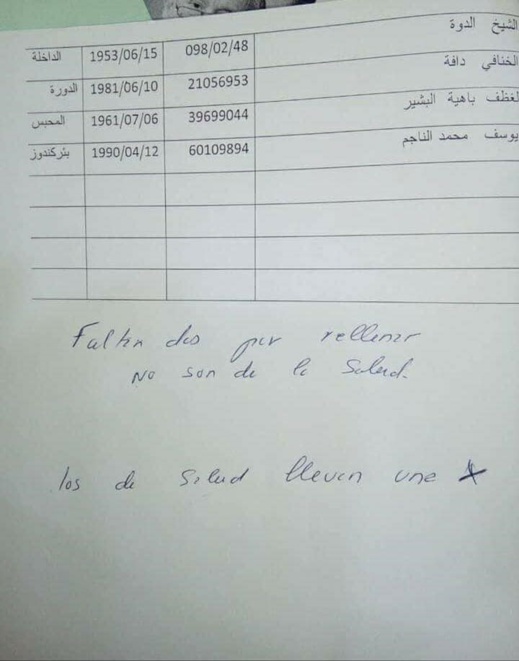 الشيخ الدوة 098/02/48 1953/06/15 الداخلة
الخنافي دافة 21056953 1981/06/10 الدورة
لغظف باهية البشير 39699044 1961/07/06 المحبس
يوسف محمد الناجم 60109894 1990/04/12 بئركندوز
Faltan dos por rellenar
No son de la Salud.
los de Salud llevan une X